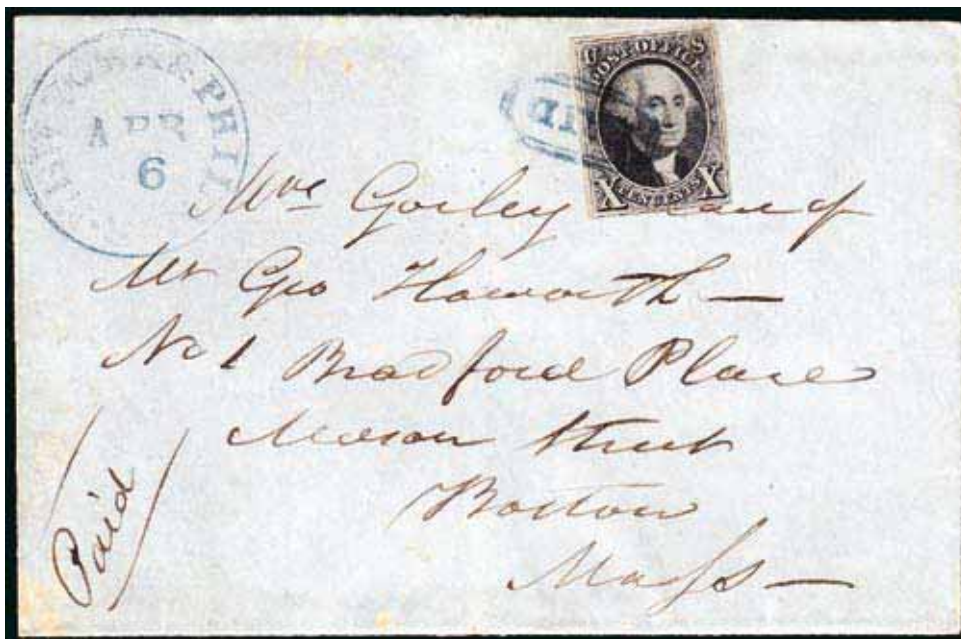 & PHIL
APR
6
PAID
U S
POST OFFICE
X TEN CENTS X
Mrs Gorley Care of
Mr Geo Howorth —
No 1 Bradford Place
Mason Street
Boston
Mass —
Paid